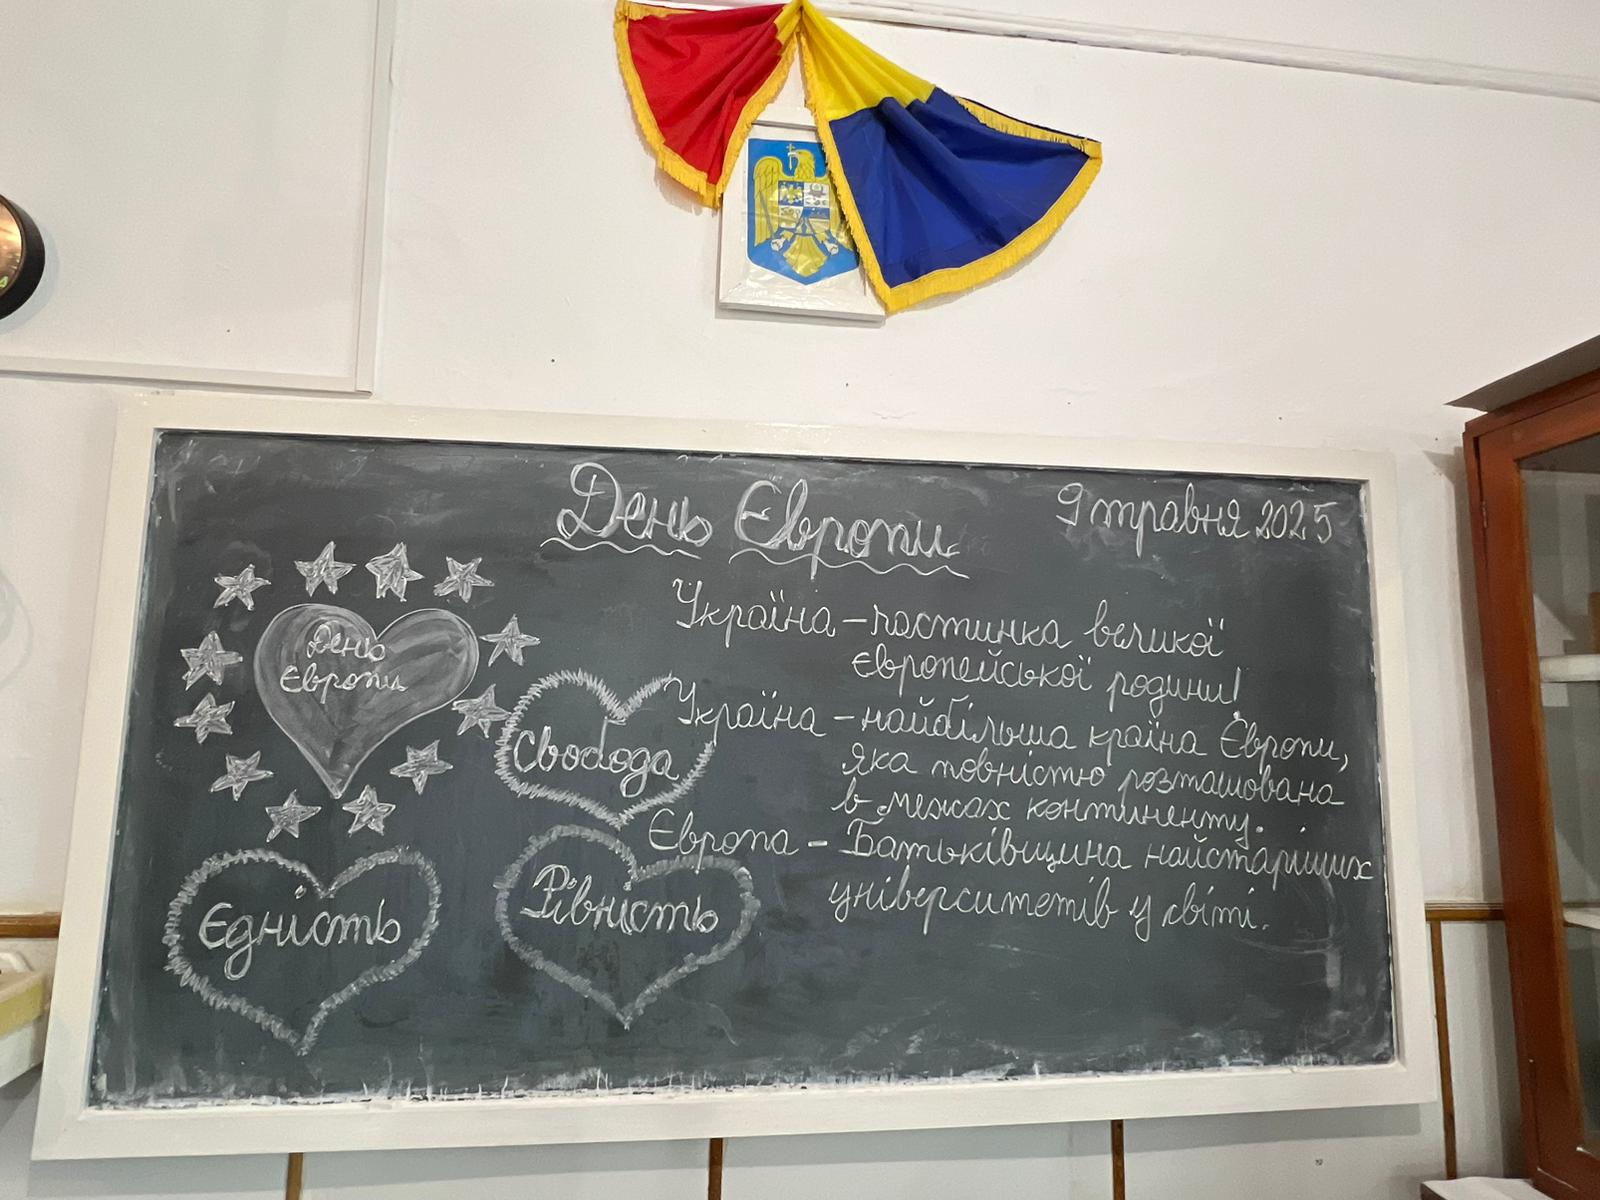 День Європи
9 травня 2025
День
Європи
Свобода
Єдність
Рівність
Україна – частинка великої
європейської родини!
Україна – найбільша країна Європи,
яка повністю розташована
в межах континенту.
Європа – Батьківщина найстаріших
університетів у світі.